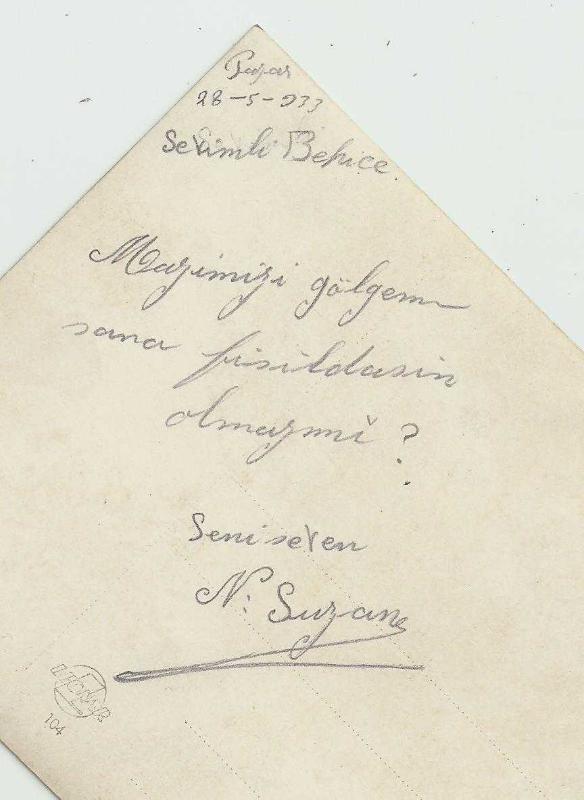 Pazar
28-5-933
Sevimli Behice.
Mazimizi gölgem
sana fisildasin
olmazmi?
Seni seven
N. Suzan
104